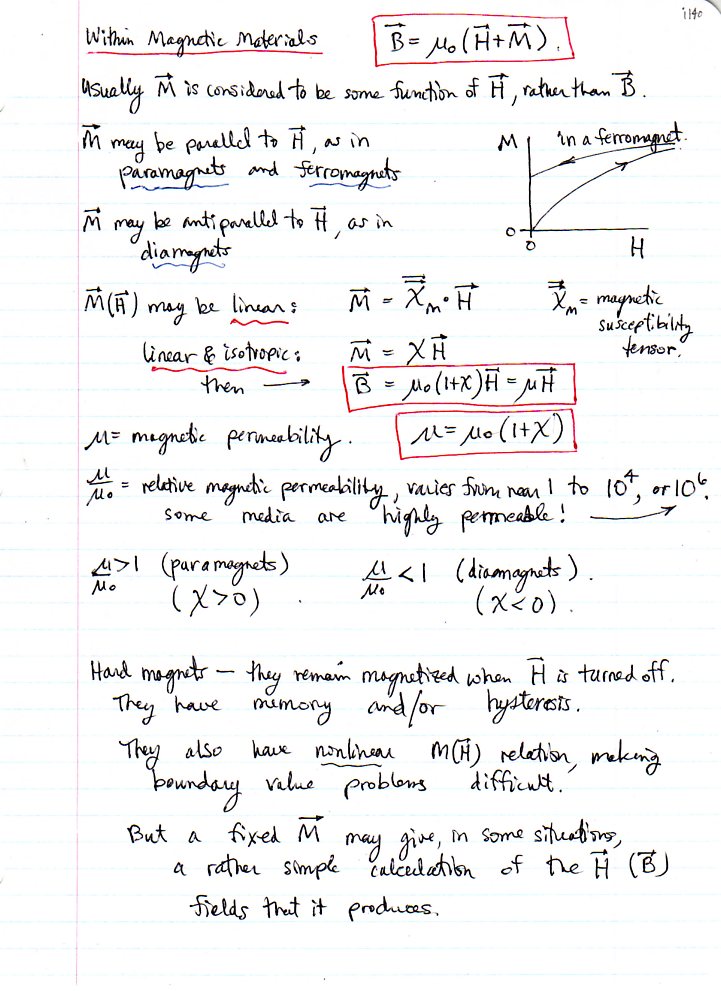 i140
Within Magnetic Materials
B⃗ = μ₀(H⃗+M⃗).
Usually M⃗ is considered to be some function of H⃗, rather than B⃗.
M⃗ may be parallel to H⃗, as in
paramagnets and ferromagnets
M
in a ferromagnet.
0
0
H
M⃗ may be antiparallel to H⃗, as in
diamagnets
M⃗(H⃗) may be linear: M⃗ = χ⃗⃗ₘ·H⃗
χ⃗⃗ₘ = magnetic
susceptibility
tensor.
linear & isotropic: M⃗ = χH⃗
then → B⃗ = μ₀(1+χ)H⃗ = μH⃗
μ = magnetic permeability. μ = μ₀(1+χ)
μ/μ₀ = relative magnetic permeability, varies from near 1 to 10⁴, or 10⁶.
some media are highly permeable! →
μ/μ₀ >1 (paramagnets) μ/μ₀ <1 (diamagnets).
(χ>0). (χ<0).
Hard magnets — they remain magnetized when H⃗ is turned off.
They have memory and/or hysteresis.
They also have nonlinear M(H⃗) relation, making
boundary value problems difficult.
But a fixed M⃗ may give, in some situations,
a rather simple calculation of the H⃗ (B⃗)
fields that it produces.